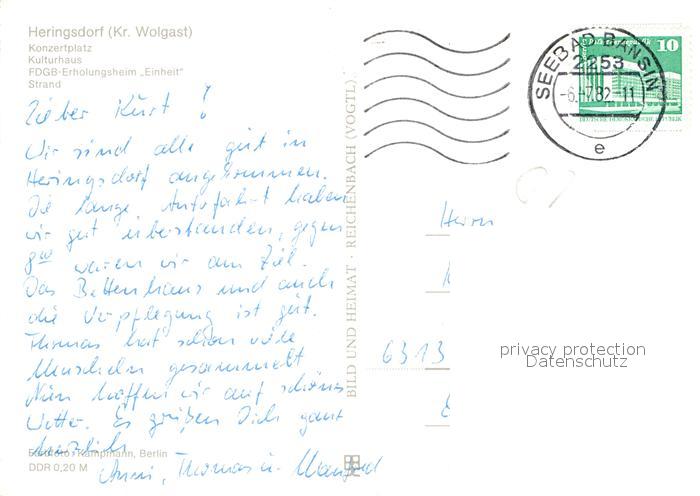 Heringsdorf (Kr. Wolgast)
Konzertplatz
Kulturhaus
FDGB-Erholungsheim „Einheit"
Strand
Lieber Kurt!
Wir sind alle gut in
Heringsdorf angekommen.
Die lange Autofahrt haben
wir gut überstanden, gegen
8⁰⁰ waren wir am Ziel.
Das Bettenhaus und auch
die Verpflegung ist gut.
Thomas hat schon viele
Muscheln gesammelt
Nun hoffen wir auf schönes
Wetter. Es grüßen Dich ganz
herzlich
Anni, Thomas u. Manfred
Kampmann, Berlin
DDR 0,20 M
BILD UND HEIMAT · REICHENBACH (VOGTL)
SEEBAD BANSIN
2253
-6.-7.82.-11
e
10
Herrn
6313
privacy protection
Datenschutz